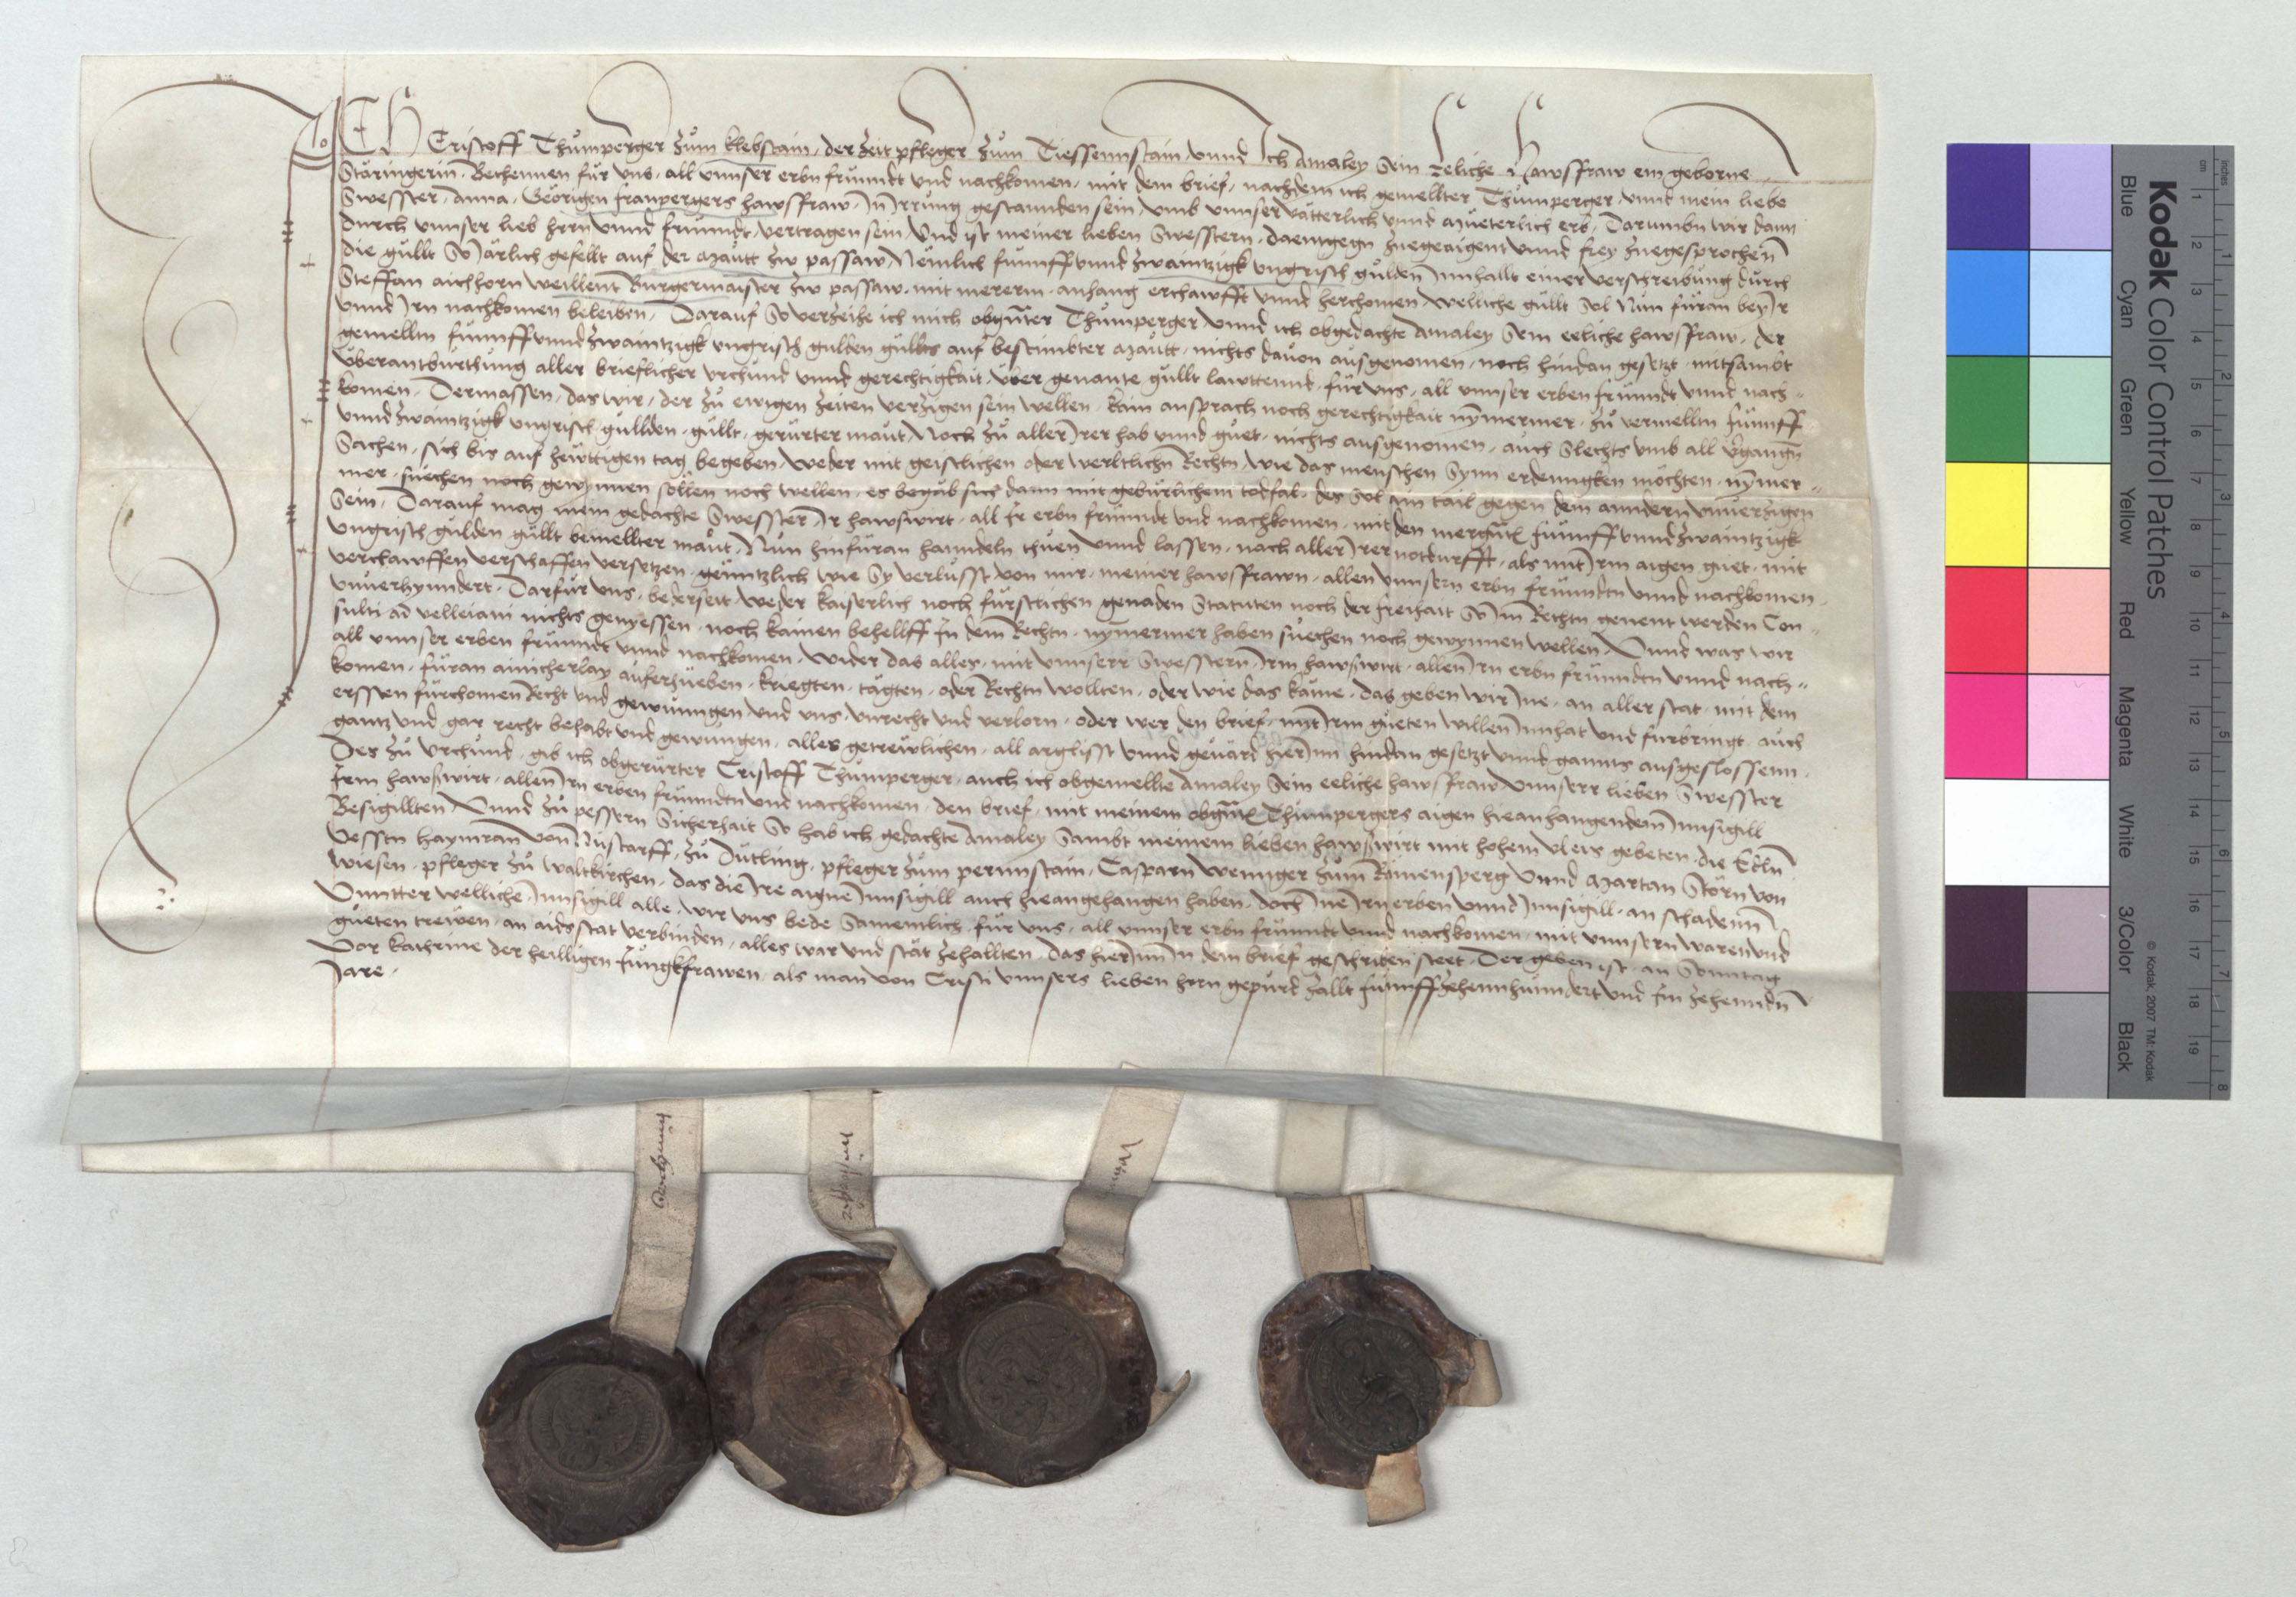 ICH Cristoff Thumperger zum klebstain, der zeit pfleger zum Diessennstain, vnnd Ich Amaley Sein Eeliche Hawsfraw ein geborne
Störingerin, Bekhennen für vns, all vnnser erbn freundt vnd nachkomen, mit dem brief, nachdem ich gemellter Thumperger, vnnd mein liebe
Swesster, Anna, Georigen franpergers hawsfraw, In Irrung gestannden sein, vmb vnnser vätterlich vnnd Mueterlich erb, Darumbn wir dann
durch vnnser lieb herrn vnnd freundt, vertragen sein, Vnd ist meiner lieben Swesstern, daentgegn zuegeaigent vnnd frey zuegesprochen
die gullt So Järlich gefellt auf der Mautt zw passaw, Nemlich funnff vnnd zwaintzigk vngrisch gulden Innhallt einer verschreibung durch
Steffan aichhorn weillent Burgermaister zw passaw, mit mererm anhang erchawfft vnnd herchomen, Welliche gullt Sol Nun füran bey Ir
vnnd Irn nachkomen beleiben, Darauf So verzeihe ich mich obgnter Thumperger Vnnd ich obgedachte Amaley Sein eeliche hawsfraw, der
gemelltn funnff vnnd zwaintzigk vngrisch gulden gullts auf bestimbter Mautt, nichts dauon ausgenomen, noch hindan gesetzt, mitsambt
vberantburthung aller brieflicher vrchund vnnd gerechtigkait, vber genante gullt lawttennd, für vns, all vnnser erben freundt vnnd nach=
komen, Dermassen, das wir, der zu ewigen zeiten verzigen sein wellen, kain ansprach noch gerechtigkait nymermer, zu vermelltn funnff
vnnd zwaintzigk vngrisch gullden, gullt, gerurter maut, Noch zu aller Irer hab vnnd guet, nichts ausgenomen, auch Slechts vmb all vergangn
Sachen, sich bis auf hewttigen tag begeben, weder mit geistlichen oder werltlichn Rechtn, wie das menschen Synn erdenngken möchten, nymer=
mer, suechen noch gewynnen söllen noch wellen, es begäb sich dann mit gebürlichem todfal, des Sol ein tail gegen dem anndern vnuerzigen
Sein, Darauf mag mein gedachte Swesster Ir hawswirt, all Ir erbn freundt vnd nachkomen, mit den mergntn funnff vnnd zwaintzigk
vngrisch gulden gullt bemellter maut, Nun hinfüran hanndeln thuen vnnd lassen, nach aller Irer notdurfft, als mit Irm aigen guet, mit
verchawffen verschaffen versetzen, genntzlich wie Sy verlusst von mir, meiner hawsfrawn, allen vnnsern erbn freundtn vnnd nachkomen,
vnuerhynndert, Darfür vns, bederseit, weder kaiserlich noch furstlichen genaden Statuten noch der freihait So Im Rechtn genent werden Con=
sulti ad velleiani nichts genyessen, noch kainen behellff In dem Rechtn, nymermer haben suechen noch gewynnen wellen, Vnnd was wir
all vnnser erben freundt vnnd nachkomen, wider das alles, mit vnnserr Swesstern, Irm hawswirt, allen Irn erbn freundtn vnnd nach=
komen, füran ainicherlay auferhueben, kriegten, tägten, oder Rechtn wollten, oder wie das käme, das geben wir Ine, an aller stat, mit dem
erssten fürchomen Recht vnd gewunngen, vnd vns, vnrecht vnd verlorn, oder wer den brief, mit Irm gueten willen Innhat vnd furbringt, auch
gantz vnd gar recht behabt vnd gewungen, alles getrewlichen, all arglisst vnnd geuärd hierinn hindan gesetzt vnnd gannts ausgeslossenn,
Des zu vrchund, gib ich obgerürter Cristoff Thumperger, auch ich obgemellte Amaley Sein eeliche hawsfraw Vnnserr lieben Swesster
Irem hawswirt, allen Irn erben freundtn vnd nachkomen, den brief, mit meinem obgntn Thumpergers aigen hieanhangendem Innsigill
Besigillten, Vnnd zu pessern Sicherhait So hab ich gedachte Amaley Sambt meinem lieben hawswirt mit hohem vleis gebeten, die Edln
Vesstn Haymran von Nustarff, zu Dutling, pfleger zum pernnstain, Casparn Weninger zum Römensperg Vnnd Martan Störn von
wiesen, pfleger zu waltkirchen, das die Ire aigne Innsigill auch hieangehangen haben, doch Ine Irn erben vnnd Innsigill, an schadenn
Vnntter welliche Innsigill alle, wir vns bede Samentlich, für vns, all vnnser erbn freundt vnnd nachkomen, mit vnnsern waren vnd
gueten trewen, an aids stat verbinden, alles war vnd stät zehallten, das hierinn In dem brief geschriben steet, Der geben ist, an Sonntag
Vor kathrine der heilligen Jungkfrawen, als man von Cristi vnnsers lieben hern gepurd zallt funnffzehennhundert vnd Im zehenndn
Jare,